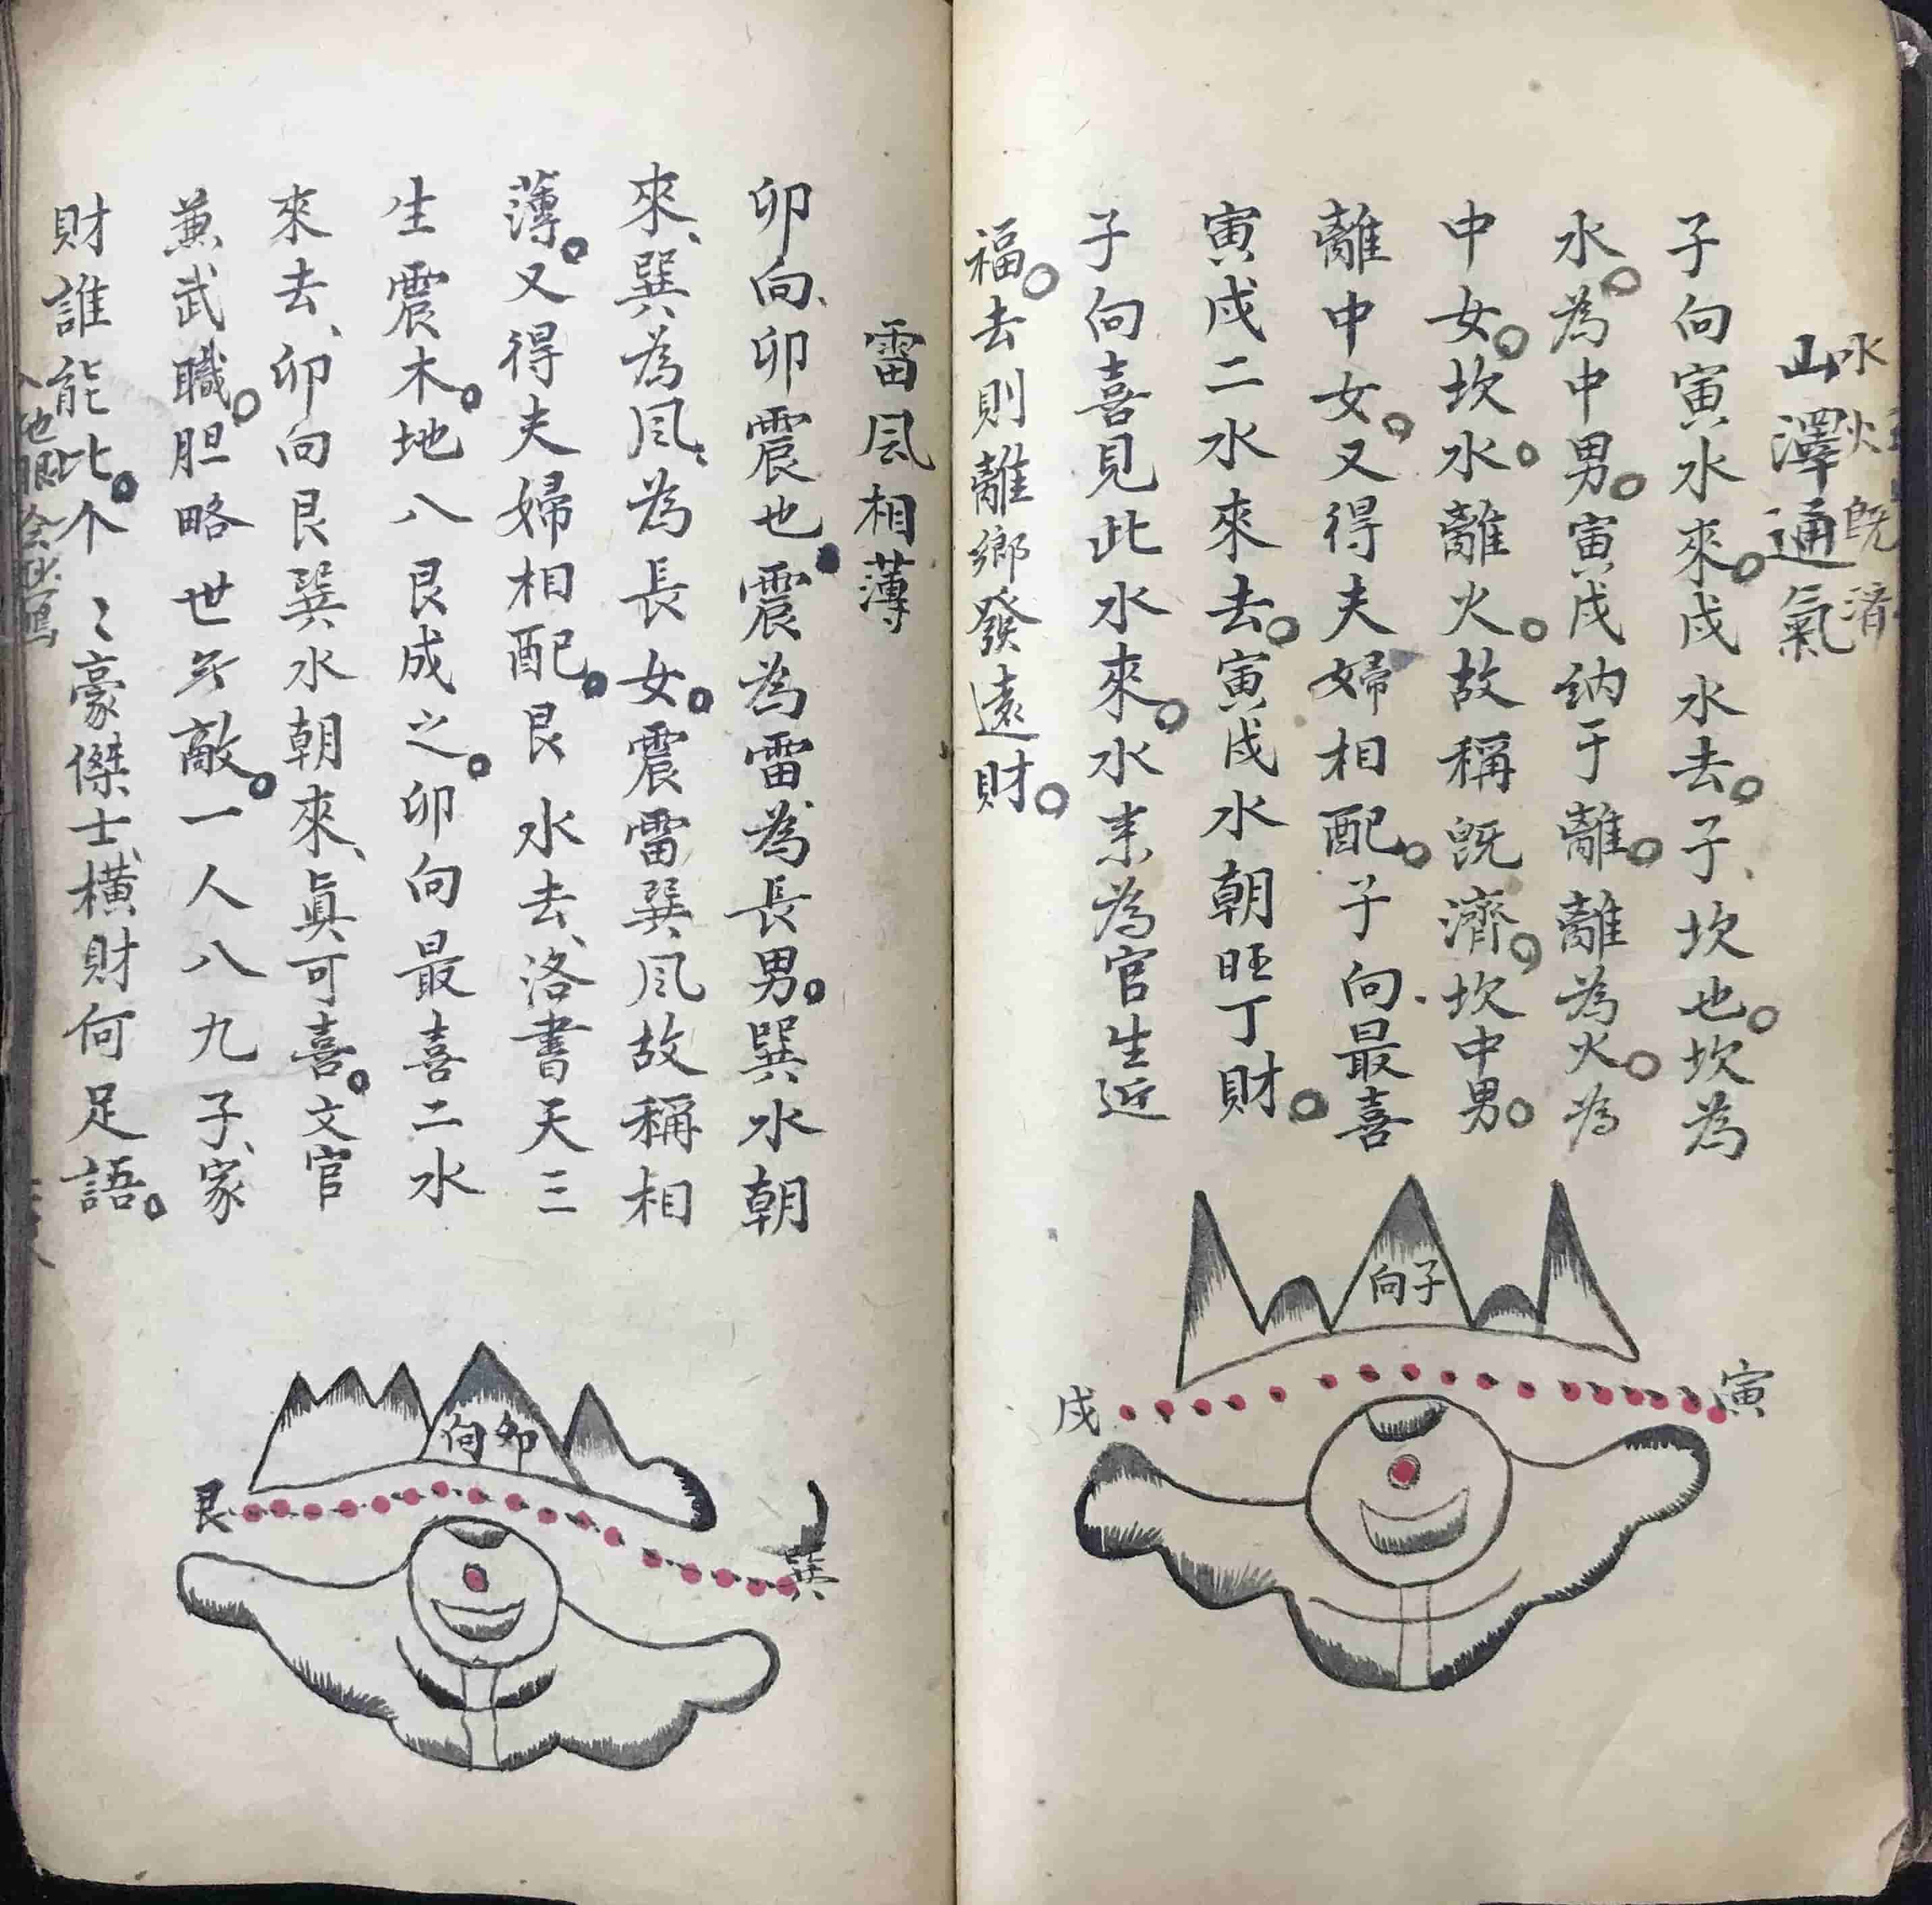 水火既濟
山澤通氣
子向寅水來。戌水去。子、坎也。坎為
水。為中男。寅戌纳于離。離為火。為
中女。坎水。離火。故稱既濟。坎中男。
離中女。又得夫婦相配。子向最喜
寅戌二水來去。寅戌水朝旺丁財。
子向喜見此水來。水来為官生近
福。去則離鄉發遠財。
向子
戌
寅
雷風相薄
卯向、卯震也。震為雷、為長男。巽水朝
來、巽為風、為長女。震雷巽風故稱相
薄。又得夫婦相配。艮水去、洛書天三
生震木。地八艮成之。卯向最喜二水
來去、卯向艮巽水朝來、眞可喜。文官
兼武職。胆略世无敵。一人八九子、家
財誰能比。个〻豪傑士、横財何足語。
向卯
艮
巽